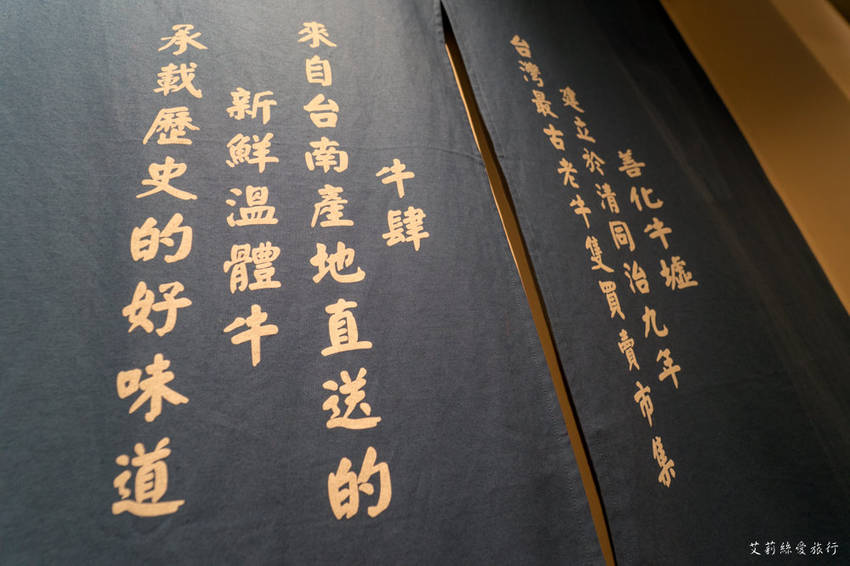 善化牛墟
建立於清同治九年
台灣最古老牛隻買賣市集
牛肆
來自台南產地直送的
新鮮溫體牛
承載歷史的好味道
艾莉絲愛旅行